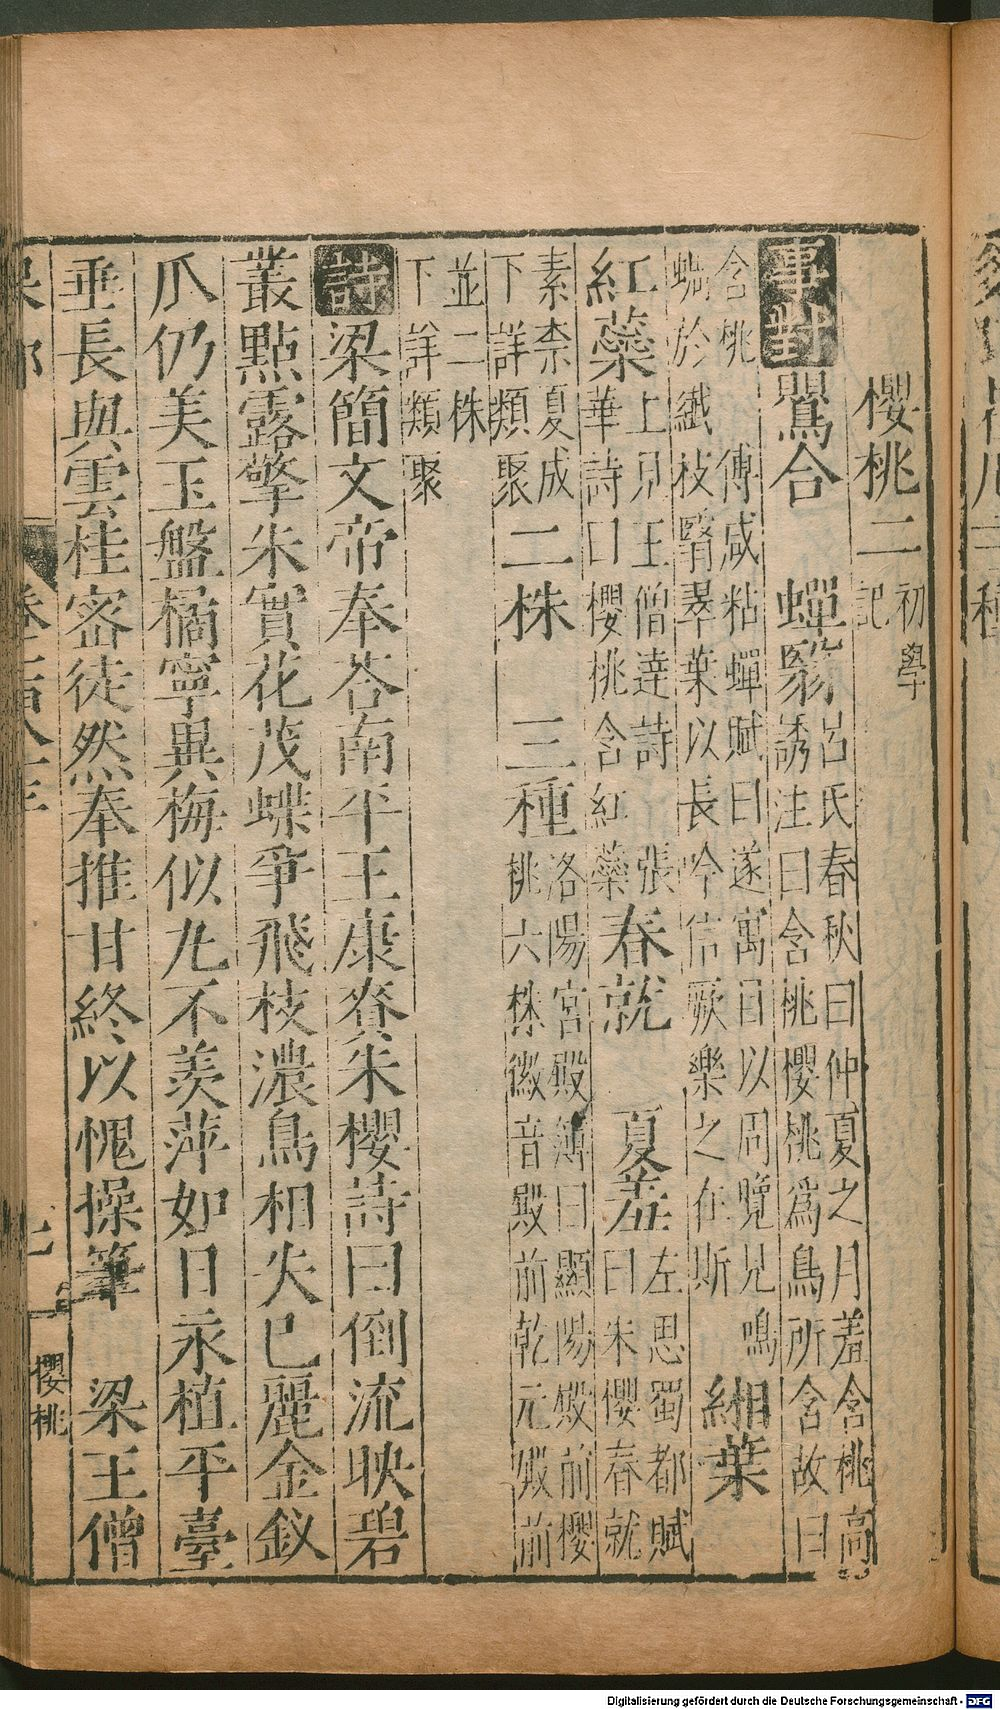 櫻桃二 初學
記
事對 鸎合 蟬翳 呂氏春秋曰仲夏之月羞含桃高
誘注曰含桃櫻桃爲鳥所含故曰
含桃 傅咸粘蟬賦曰遂寓目以周覽見鳴
蜩於纖枝翳翠葉以長吟信厥樂之在斯 緗葉
紅蘂 上見王僧達詩 張
華詩曰櫻桃含紅蘂 春就 夏羞 左思蜀都賦
曰朱櫻春就
素柰夏成
下詳類聚 二株 三種 洛陽宮殿簿曰顯陽殿前櫻
桃六株徽音殿前乾元殿前
並二株
下詳類聚
詩 梁簡文帝奉荅南平王康賚朱櫻詩曰倒流映碧
叢點露擎朱實花茂蝶爭飛枝濃鳥相失已麗金釵
爪仍美玉盤橘寧異梅似丸不羨萍如日永植平臺
垂長與雲桂密徒然奉推甘終以愧操筆 梁王僧
果部
櫻桃
Digitalisierung gefördert durch die Deutsche Forschungsgemeinschaft - DFG